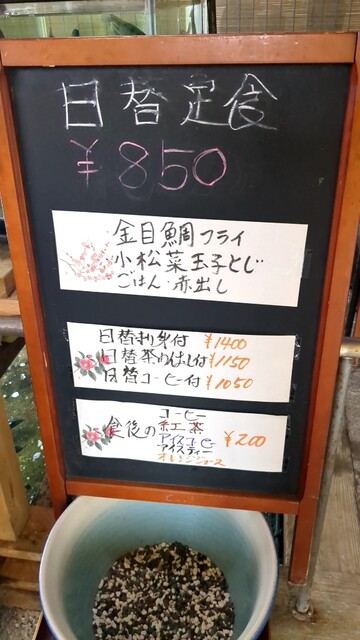 日替定食
¥850
金目鯛フライ
小松菜玉子とじ
ごはん・赤出し
日替刺身付 ¥1400
日替茶わんむし付 ¥1150
日替コーヒー付 ¥1050
食後の
コーヒー
紅茶
アイスコーヒー
アイスティー
オレンジジュース
¥200